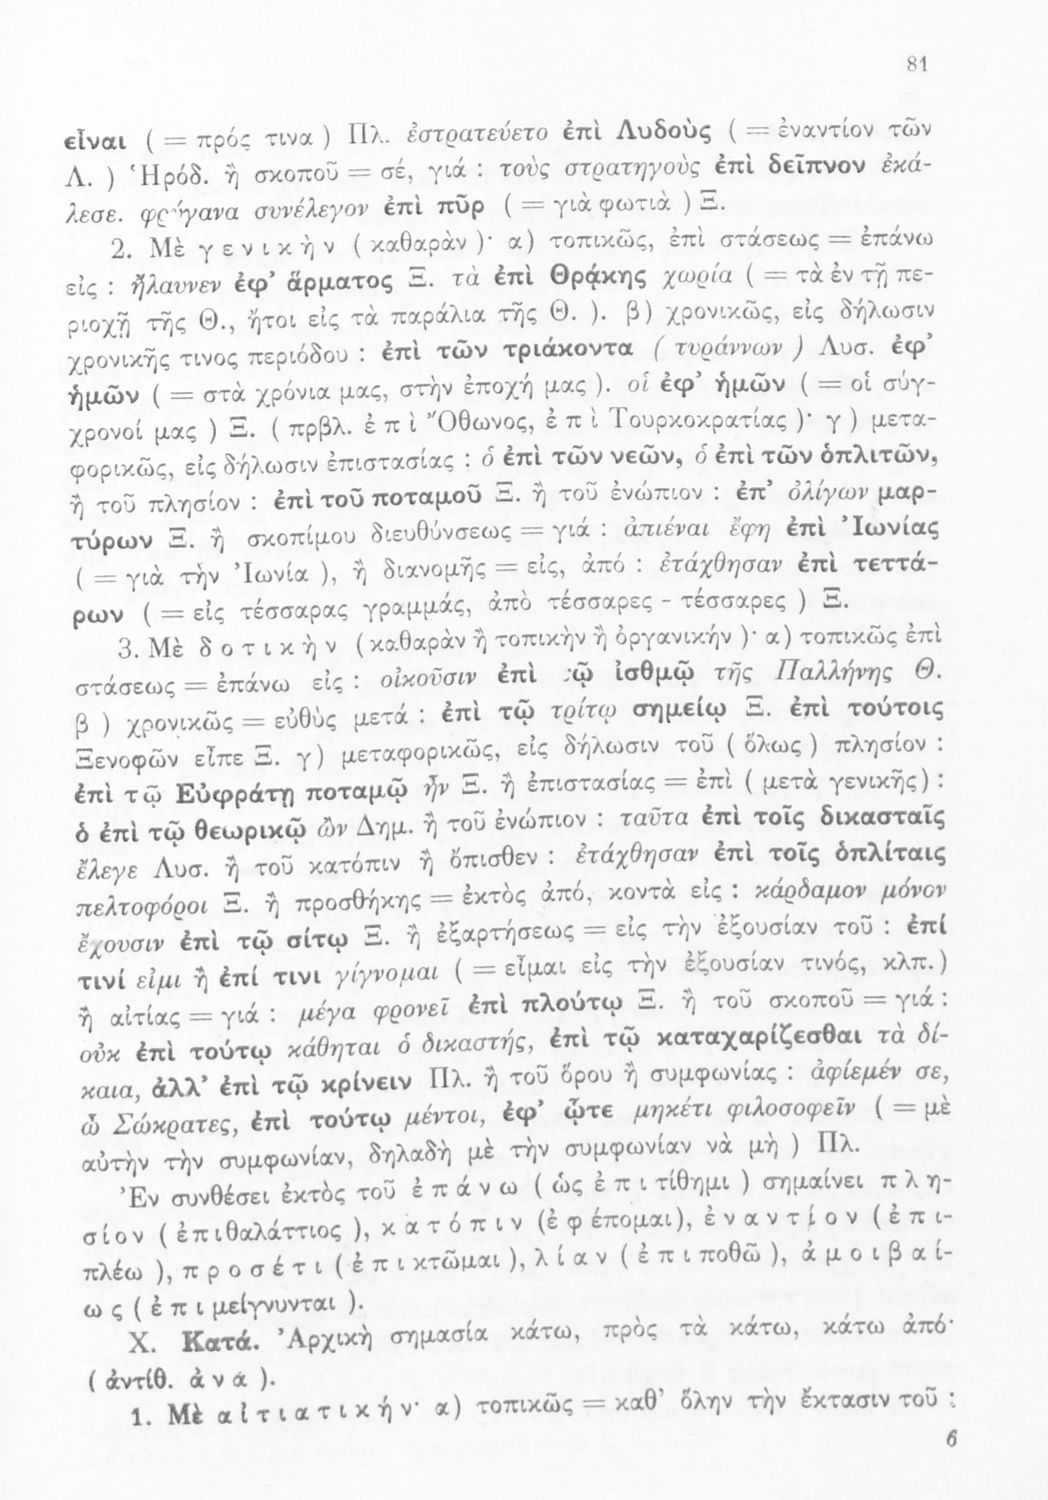 81
εἶναι ( = πρός τινα ) Πλ. ἐστρατεύετο ἐπὶ Λυδοὺς ( = ἐναντίον τῶν
Λ. ) Ἡρόδ. ἢ σκοποῦ = σέ, γιά : τοὺς στρατηγοὺς ἐπὶ δεῖπνον ἐκά-
λεσε. φρύγανα συνέλεγον ἐπὶ πῦρ ( = γιὰ φωτιὰ ) Ξ.
2. Μὲ γενικὴν ( καθαρὰν )· α) τοπικῶς, ἐπὶ στάσεως = ἐπάνω
εἰς : ἤλαυνεν ἐφ’ ἅρματος Ξ. τὰ ἐπὶ Θρᾴκης χωρία ( = τὰ ἐν τῇ πε-
ριοχῇ τῆς Θ., ἤτοι εἰς τὰ παράλια τῆς Θ. ). β) χρονικῶς, εἰς δήλωσιν
χρονικῆς τινος περιόδου : ἐπὶ τῶν τριάκοντα ( τυράννων ) Λυσ. ἐφ’
ἡμῶν ( = στὰ χρόνια μας, στὴν ἐποχή μας ). οἱ ἐφ’ ἡμῶν ( = οἱ σύγ-
χρονοί μας ) Ξ. ( πρβλ. ἐπὶ Ὄθωνος, ἐπὶ Τουρκοκρατίας )· γ ) μετα-
φορικῶς, εἰς δήλωσιν ἐπιστασίας : ὁ ἐπὶ τῶν νεῶν, ὁ ἐπὶ τῶν ὁπλιτῶν,
ἢ τοῦ πλησίον : ἐπὶ τοῦ ποταμοῦ Ξ. ἢ τοῦ ἐνώπιον : ἐπ’ ὀλίγων μαρ-
τύρων Ξ. ἢ σκοπίμου διευθύνσεως = γιά : ἀπιέναι ἔφη ἐπὶ Ἰωνίας
( = γιὰ τὴν Ἰωνία ), ἢ διανομῆς = εἰς, ἀπό : ἐτάχθησαν ἐπὶ τεττά-
ρων ( = εἰς τέσσαρας γραμμάς, ἀπὸ τέσσαρες - τέσσαρες ) Ξ.
3. Μὲ δοτικὴν ( καθαρὰν ἢ τοπικὴν ἢ ὀργανικήν )· α) τοπικῶς ἐπὶ
στάσεως = ἐπάνω εἰς : οἰκοῦσιν ἐπὶ τῷ ἰσθμῷ τῆς Παλλήνης Θ.
β ) χρονικῶς = εὐθὺς μετά : ἐπὶ τῷ τρίτῳ σημείῳ Ξ. ἐπὶ τούτοις
Ξενοφῶν εἶπε Ξ. γ) μεταφορικῶς, εἰς δήλωσιν τοῦ ( ὅλως ) πλησίον :
ἐπὶ τῷ Εὐφράτῃ ποταμῷ ἦν Ξ. ἢ ἐπιστασίας = ἐπὶ ( μετὰ γενικῆς ) :
ὁ ἐπὶ τῷ θεωρικῷ ὢν Δημ. ἢ τοῦ ἐνώπιον : ταῦτα ἐπὶ τοῖς δικασταῖς
ἔλεγε Λυσ. ἢ τοῦ κατόπιν ἢ ὄπισθεν : ἐτάχθησαν ἐπὶ τοῖς ὁπλίταις
πελτοφόροι Ξ. ἢ προσθήκης = ἐκτὸς ἀπό, κοντὰ εἰς : κάρδαμον μόνον
ἔχουσιν ἐπὶ τῷ σίτῳ Ξ. ἢ ἐξαρτήσεως = εἰς τὴν ἐξουσίαν τοῦ : ἐπί
τινί εἰμι ἢ ἐπί τινι γίγνομαι ( = εἶμαι εἰς τὴν ἐξουσίαν τινός, κλπ.)
ἢ αἰτίας = γιά : μέγα φρονεῖ ἐπὶ πλούτῳ Ξ. ἢ τοῦ σκοποῦ = γιά :
οὐκ ἐπὶ τούτῳ κάθηται ὁ δικαστής, ἐπὶ τῷ καταχαρίζεσθαι τὰ δί-
καια, ἀλλ’ ἐπὶ τῷ κρίνειν Πλ. ἢ τοῦ ὅρου ἢ συμφωνίας : ἀφίεμέν σε,
ὦ Σώκρατες, ἐπὶ τούτῳ μέντοι, ἐφ’ ᾧτε μηκέτι φιλοσοφεῖν ( = μὲ
αὐτὴν τὴν συμφωνίαν, δηλαδὴ μὲ τὴν συμφωνίαν νὰ μὴ ) Πλ.
Ἐν συνθέσει ἐκτὸς τοῦ ἐπάνω ( ὡς ἐπιτίθημι ) σημαίνει πλη-
σίον ( ἐπιθαλάττιος ), κατόπιν (ἐφέπομαι), ἐναντίον ( ἐπι-
πλέω ), προσέτι ( ἐπικτῶμαι ), λίαν ( ἐπιποθῶ ), ἀμοιβαί-
ως ( ἐπιμείγνυνται ).
Χ. Κατά. Ἀρχικὴ σημασία κάτω, πρὸς τὰ κάτω, κάτω ἀπό·
( ἀντίθ. ἀνά ).
1. Μὲ αἰτιατικήν· α) τοπικῶς = καθ’ ὅλην τὴν ἔκτασιν τοῦ :
6